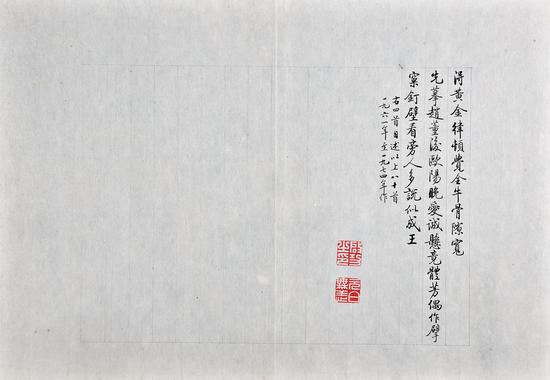 得黃金律頓覺全牛骨隙寬
先摹趙董後歐陽晚愛誠懸竟體芳偶作擘
窠釘壁看旁人多說似成王
右四首自述以上八十首
一九六一年至一九七四年作
啟功之印